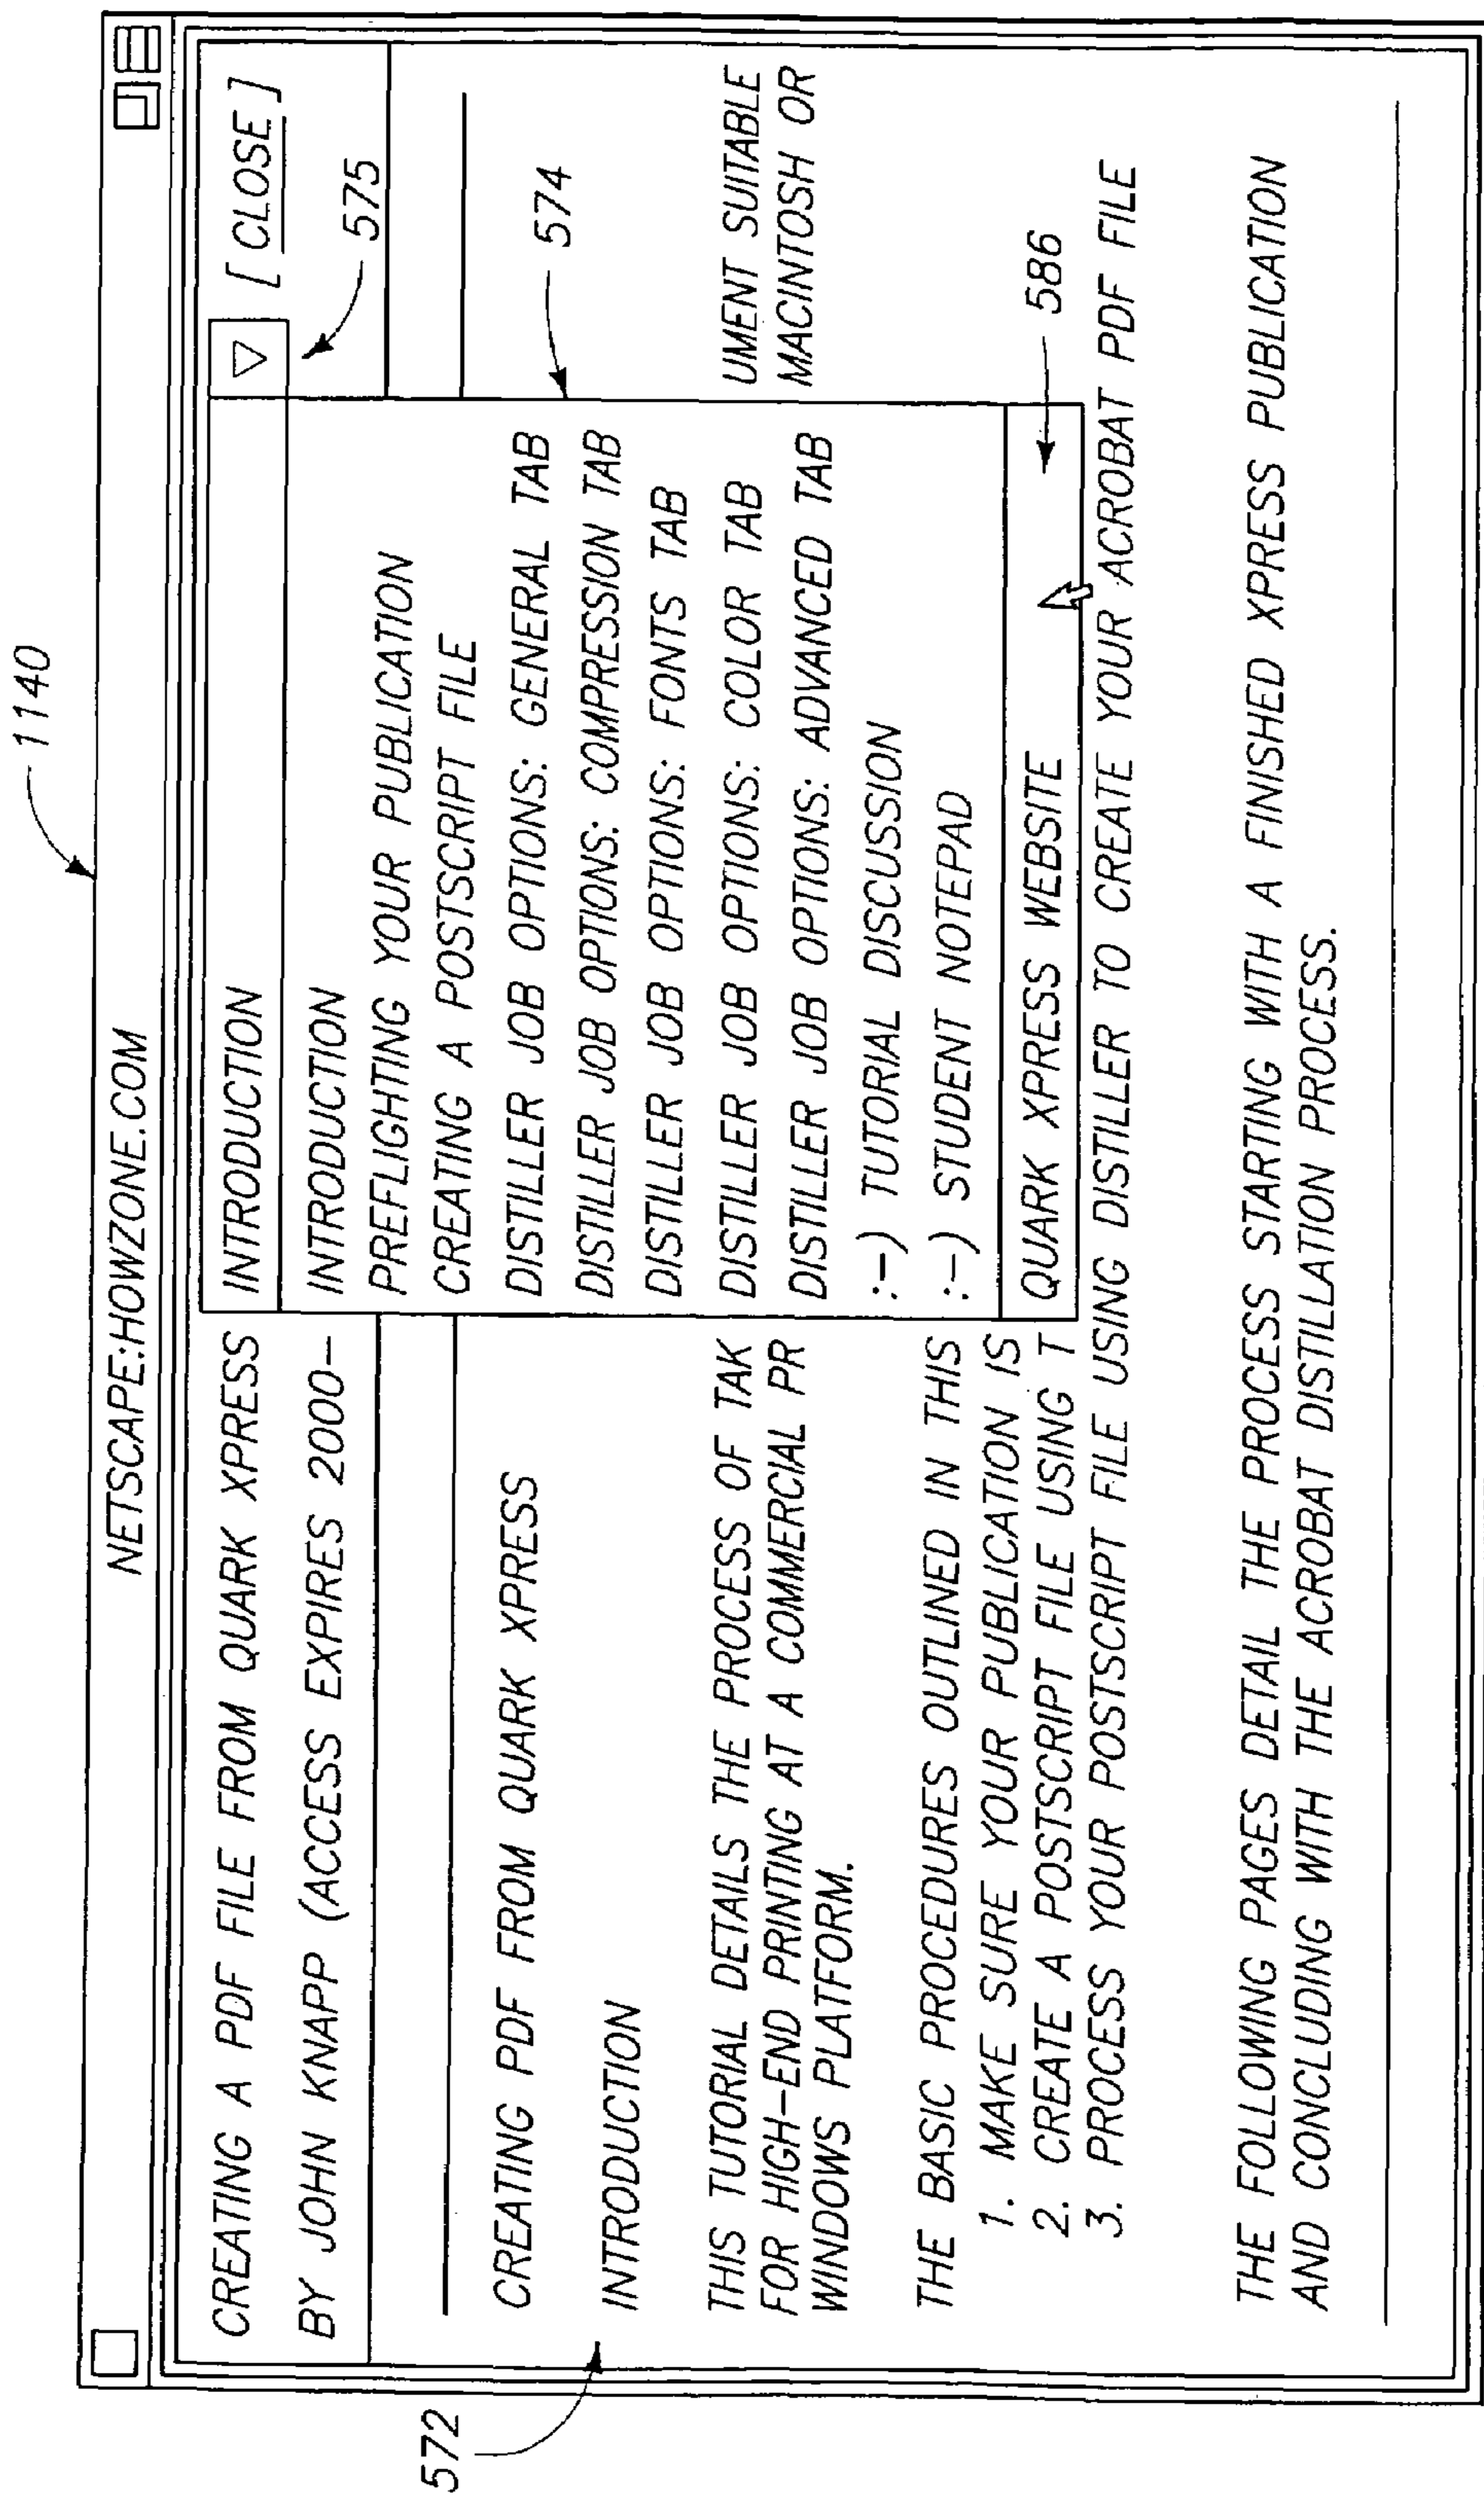 1140
NETSCAPE:HOWZONE.COM
CREATING A PDF FILE FROM QUARK XPRESS
INTRODUCTION
[ CLOSE ]
BY JOHN KNAPP (ACCESS EXPIRES 2000-
575
INTRODUCTION
PREFLIGHTING YOUR PUBLICATION
CREATING A POSTSCRIPT FILE
DISTILLER JOB OPTIONS: GENERAL TAB
DISTILLER JOB OPTIONS: COMPRESSION TAB
DISTILLER JOB OPTIONS: FONTS TAB
DISTILLER JOB OPTIONS: COLOR TAB
DISTILLER JOB OPTIONS: ADVANCED TAB
:-) TUTORIAL DISCUSSION
:-) STUDENT NOTEPAD
QUARK XPRESS WEBSITE
574
586
572
CREATING PDF FROM QUARK XPRESS
INTRODUCTION
THIS TUTORIAL DETAILS THE PROCESS OF TAK
UMENT SUITABLE
FOR HIGH-END PRINTING AT A COMMERCIAL PR
MACINTOSH OR
WINDOWS PLATFORM.
THE BASIC PROCEDURES OUTLINED IN THIS
1. MAKE SURE YOUR PUBLICATION IS
2. CREATE A POSTSCRIPT FILE USING T
3. PROCESS YOUR POSTSCRIPT FILE USING DISTILLER TO CREATE YOUR ACROBAT PDF FILE
THE FOLLOWING PAGES DETAIL THE PROCESS STARTING WITH A FINISHED XPRESS PUBLICATION
AND CONCLUDING WITH THE ACROBAT DISTILLATION PROCESS.